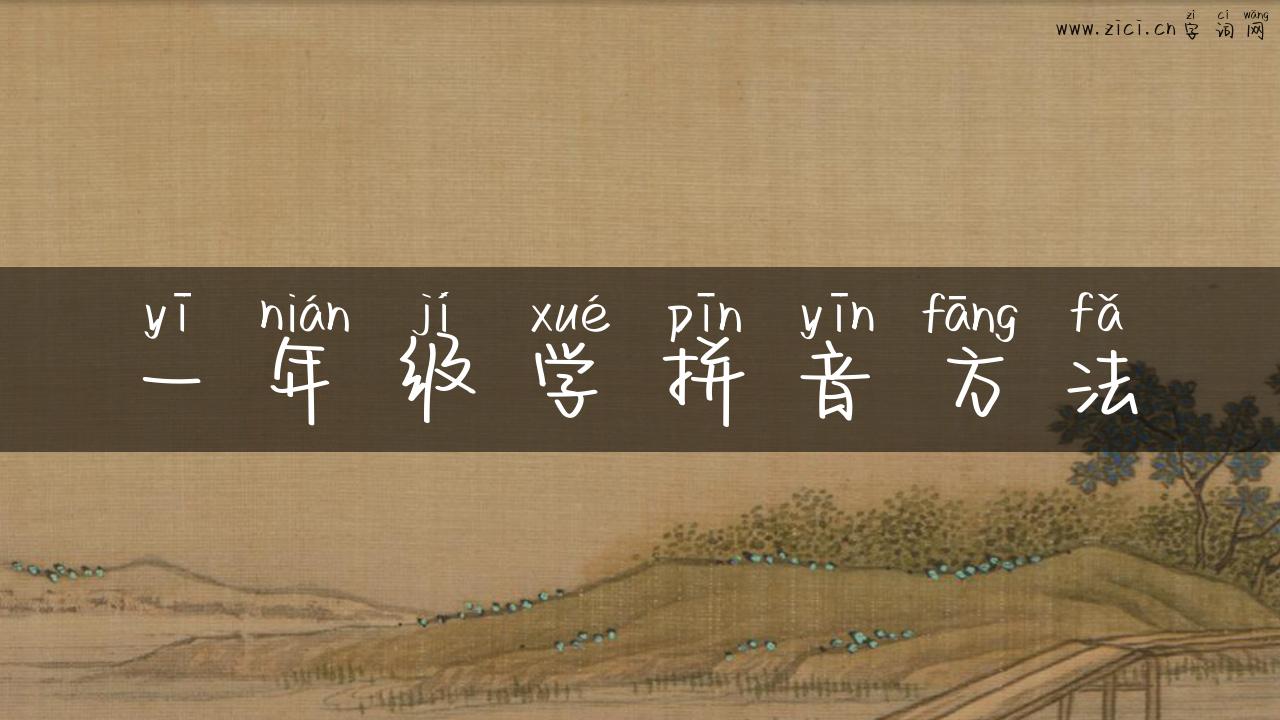 zì cí wǎng
www.zici.cn 字 词 网
yī nián jí xué pīn yīn fāng fǎ
一 年 级 学 拼 音 方 法